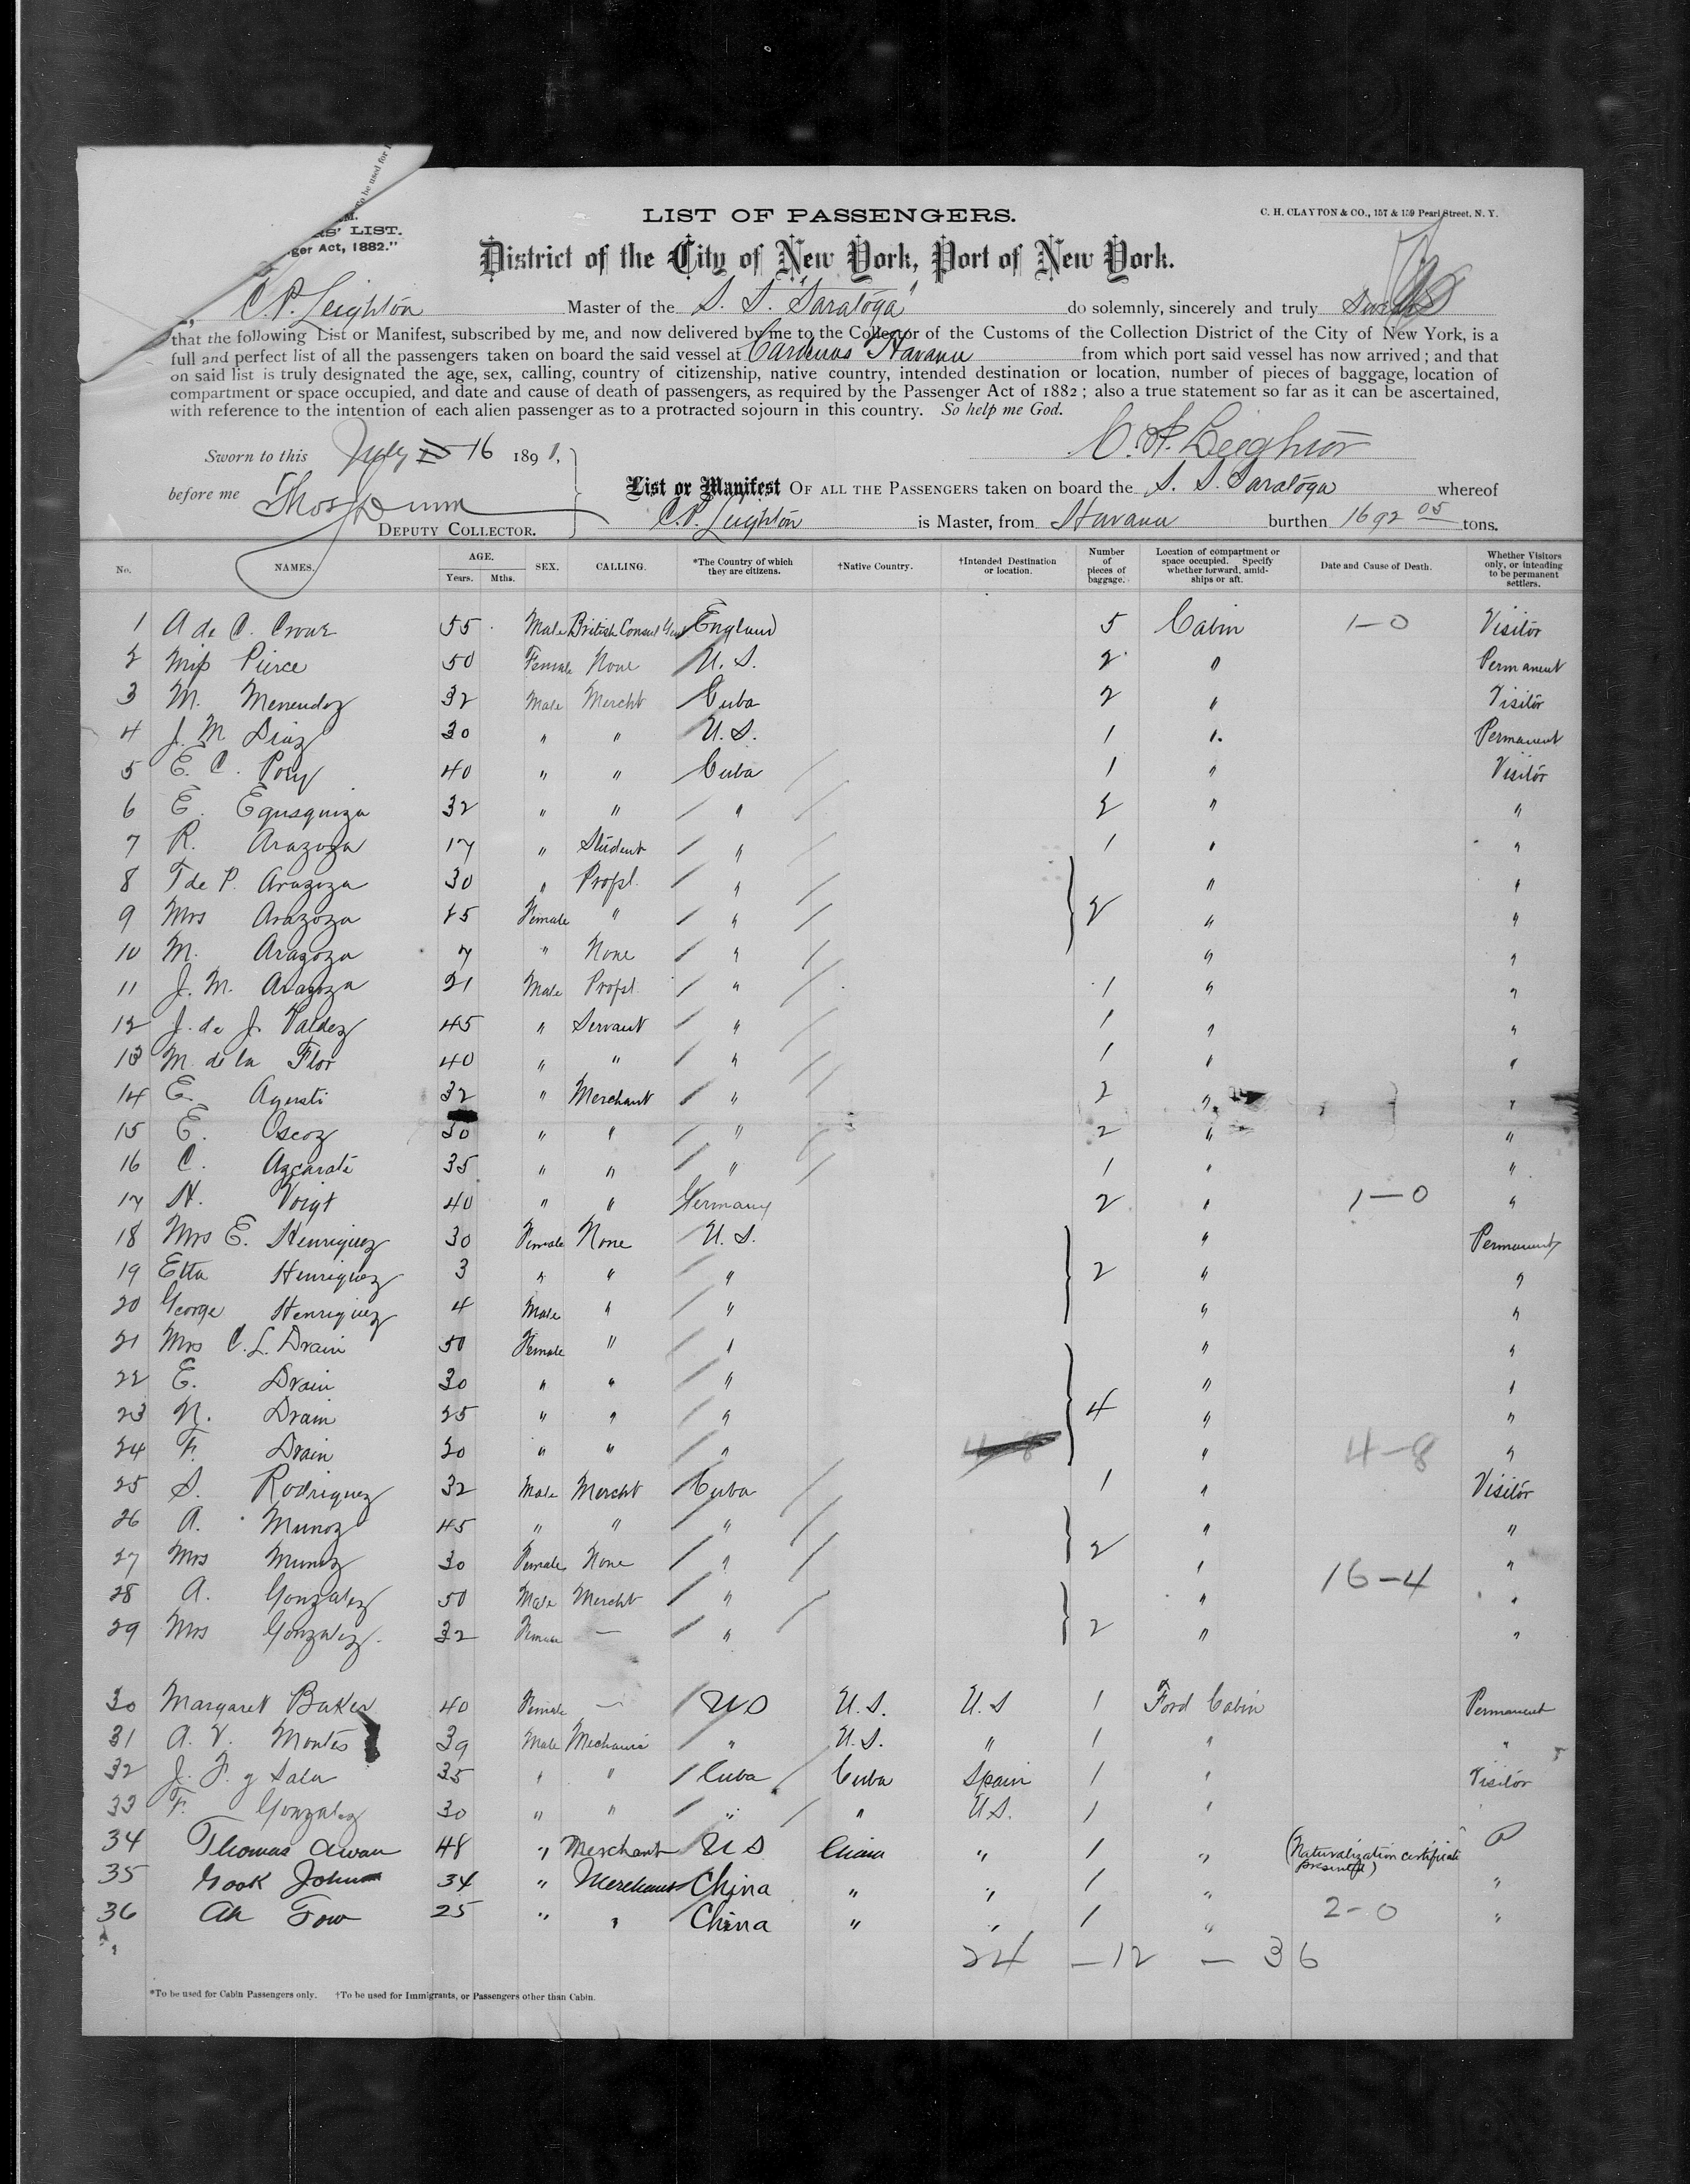 To be used for
M.
RS' LIST.
ger Act, 1882."
LIST OF PASSENGERS.
C. H. CLAYTON & CO., 157 & 159 Pearl Street, N. Y.
District of the City of New York, Port of New York.
C. P. Leighton Master of the S. S. "Saratoga" do solemnly, sincerely and truly
that the following List or Manifest, subscribed by me, and now delivered by me to the Collector of the Customs of the Collection District of the City of New York, is a
full and perfect list of all the passengers taken on board the said vessel at Cardenas Havana from which port said vessel has now arrived; and that
on said list is truly designated the age, sex, calling, country of citizenship, native country, intended destination or location, number of pieces of baggage, location of
compartment or space occupied, and date and cause of death of passengers, as required by the Passenger Act of 1882; also a true statement so far as it can be ascertained,
with reference to the intention of each alien passenger as to a protracted sojourn in this country. So help me God.
C. P. Leighton
Sworn to this July 16 1891,
before me Thos Dunn
DEPUTY COLLECTOR.
List or Manifest OF ALL THE PASSENGERS taken on board the S. S. Saratoga whereof
C. P. Leighton is Master, from Havana burthen 1692 05 tons.
No. NAMES. AGE. Years. Mths. SEX. CALLING. *The Country of which they are citizens. †Native Country. †Intended Destination or location. Number of pieces of baggage. Location of compartment or space occupied. Specify whether forward, amidships or aft. Date and Cause of Death. Whether Visitors only, or intending to be permanent settlers.
1 A de C. Crowe 55 Male British Consul Genl England 5 Cabin 1-0 Visitor
2 Miss Pierce 50 Female None U. S. 2 " Permanent
3 M. Menendez 32 Male Mercht Cuba 2 " Visitor
4 J. M Diaz 30 " " U. S. 1 " Permanent
5 E. C. Poey 40 " " Cuba 1 " Visitor
6 E. Egusquiza 32 " " " 2 " "
7 R. Arazoza 17 " Student " 1 " "
8 T de P. Arazoza 30 " Propt. " " "
9 Mrs Arazoza 25 Female " " 2 " "
10 M. Arazoza 7 " None " " "
11 J. M. Arazoza 21 Male Propt " 1 " "
12 J. de J. Valdez 45 " Servant " 1 " "
13 M. de la Flor 40 " " " 1 " "
14 E. Agusti 32 " Merchant " 2 " "
15 E. Oscoz 30 " " " 2 " "
16 C. Azcarate 35 " " " 1 " "
17 H. Voigt 40 " " Germany 2 " 1-0 "
18 Mrs E. Henriquez 30 Female None U. S. " Permanent
19 Etta Henriquez 3 " " " 2 " "
20 George Henriquez 4 Male " " " "
21 Mrs C. L. Drain 50 Female " " " "
22 E. Drain 30 " " " " "
23 N. Drain 25 " " " 4 " "
24 F. Drain 20 " " " " 4-8 "
25 S. Rodriguez 32 Male Mercht Cuba 1 " Visitor
26 A. Munoz 45 " " " " "
27 Mrs Munoz 30 Female None " 2 " "
28 A. Gonzalez 50 Male Mercht " " 16-4 "
29 Mrs Gonzalez 32 Female — " 2 " "
30 Margaret Baker 40 Female — U S U. S. U. S 1 Ford Cabin Permanent
31 A. V. Montes 39 Male Mechanic " U. S. " 1 " "
32 J. F. y Sala 35 " " Cuba Cuba Spain 1 " Visitor
33 F. Gonzalez 30 " " " " U S. 1 "
34 Thomas Awan 48 " Merchant U S China " 1 " (Naturalization certificate presented) P
35 Gook John 34 " Merchant China " " 1 " "
36 Ah Fow 25 " " China " " 1 " 2-0 "
24 - 12 - 36
*To be used for Cabin Passengers only. †To be used for Immigrants, or Passengers other than Cabin.